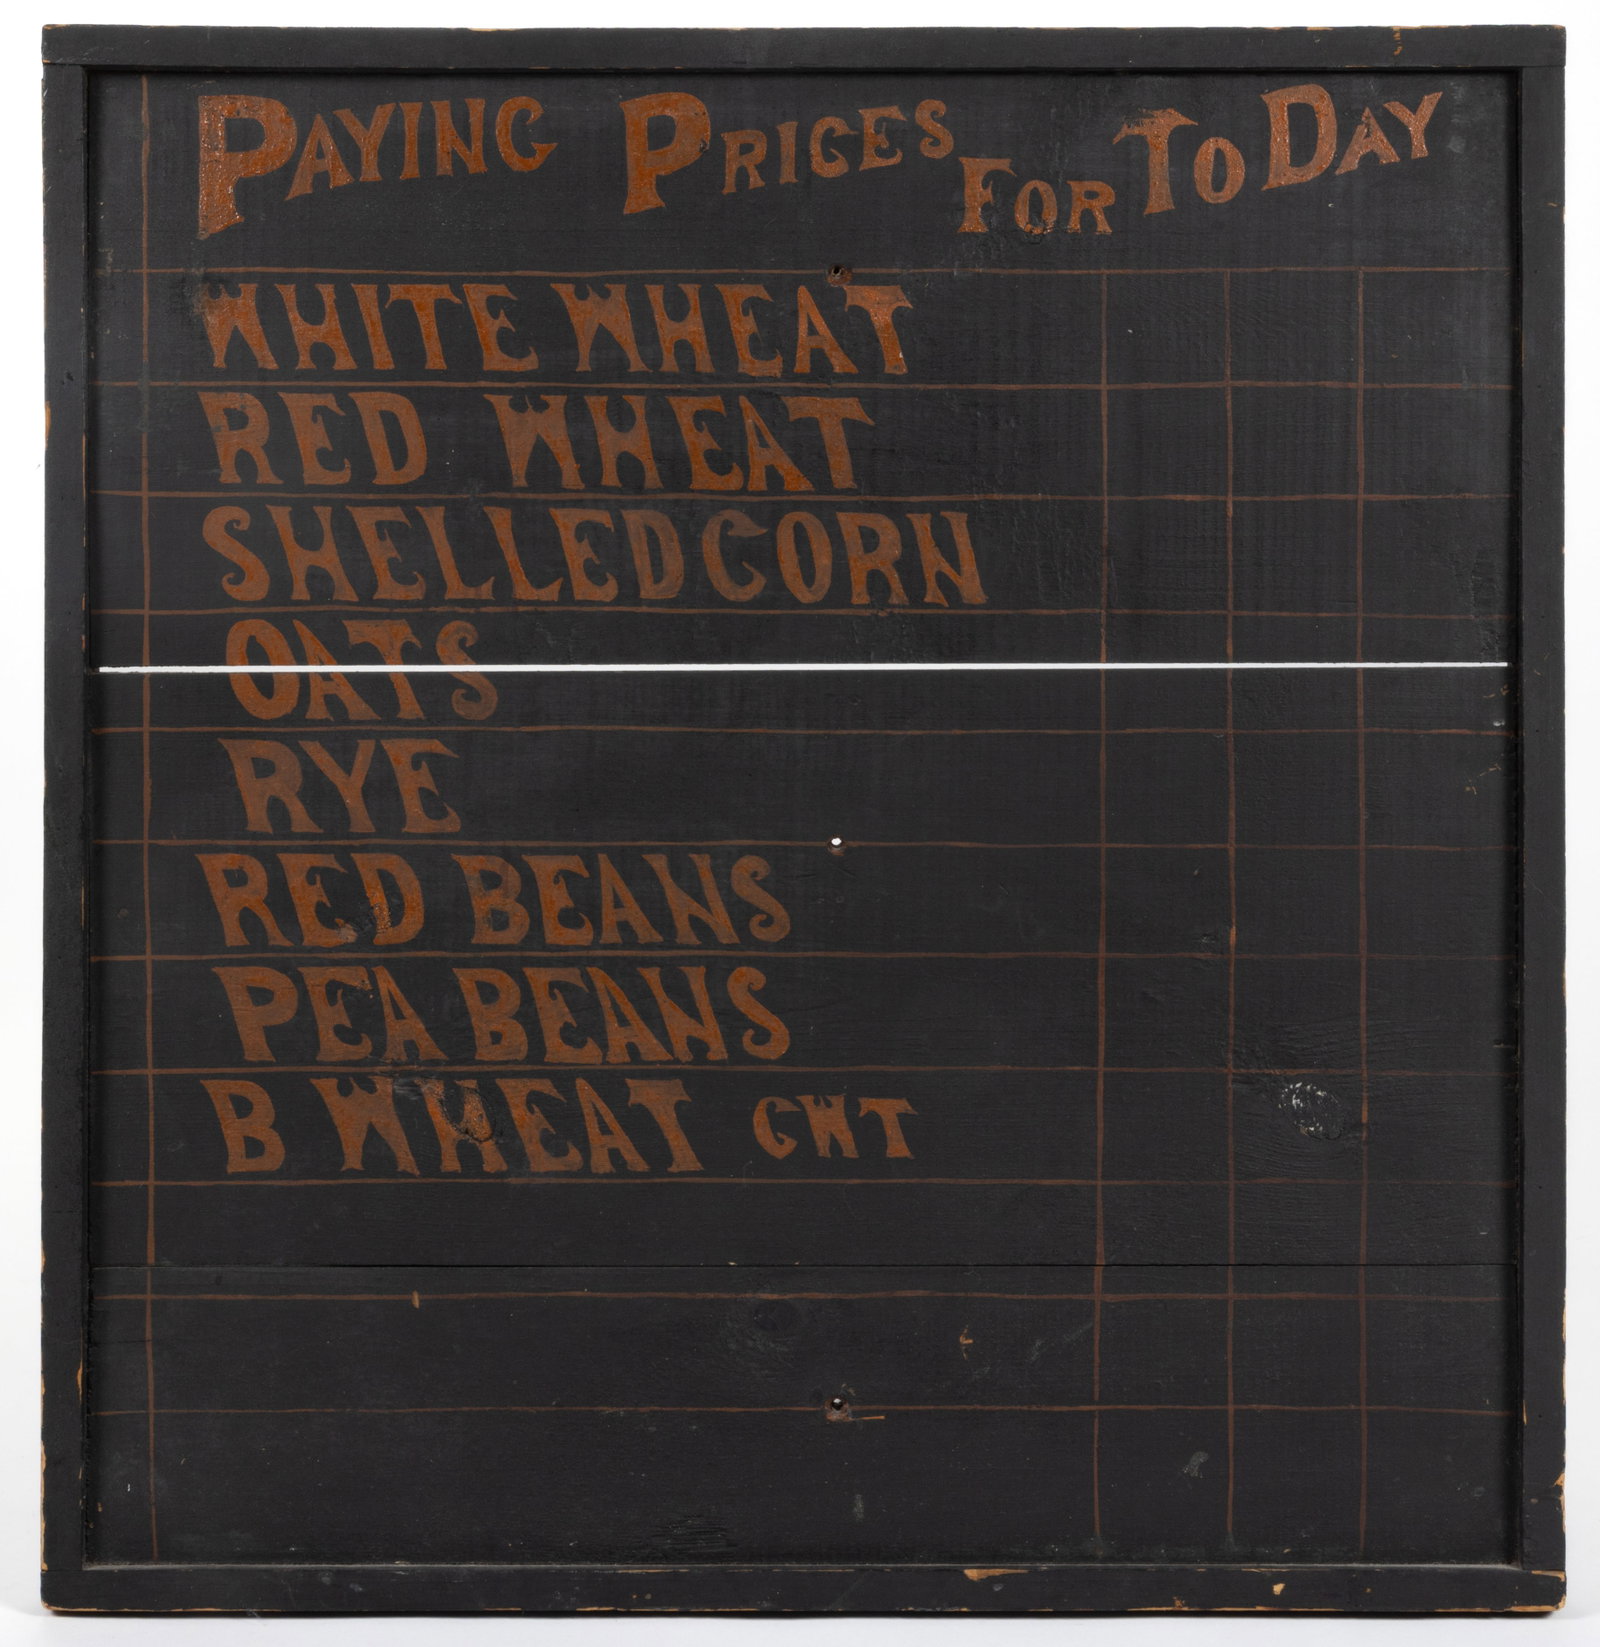 PAYING PRICES FOR TO DAY
WHITE WHEAT
RED WHEAT
SHELLED CORN
OATS
RYE
RED BEANS
PEA BEANS
B WHEAT CWT